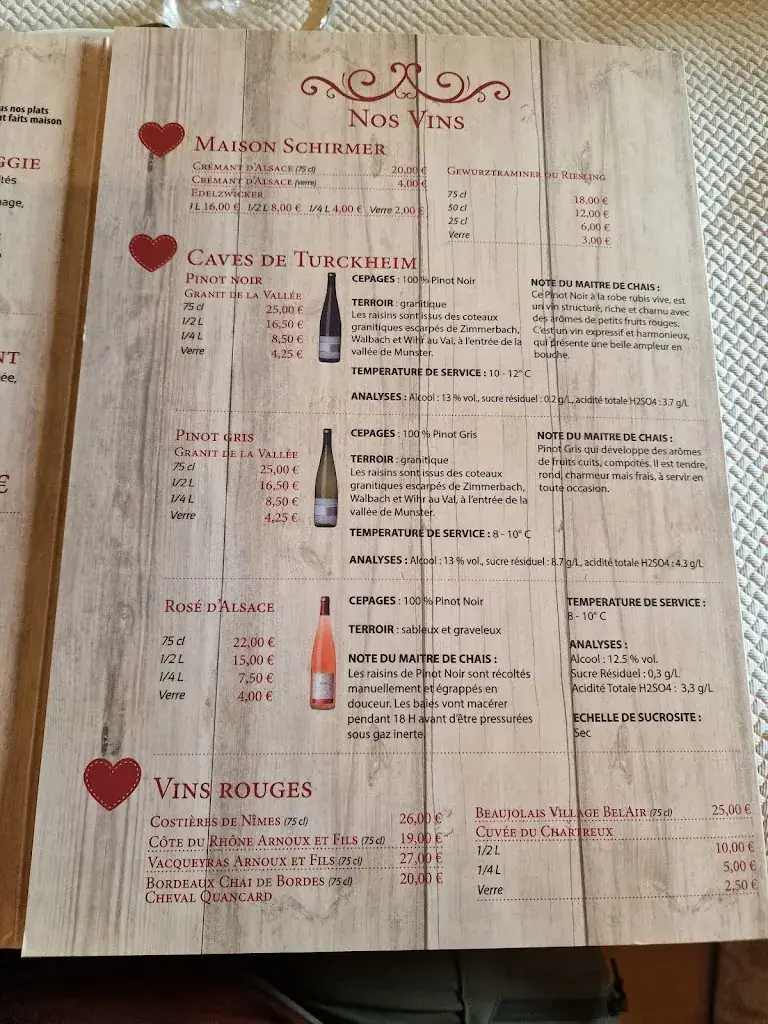 us nos plats
nt faits maison
GGIE
tés
nage,
NT
ée,
€
Nos Vins
Maison Schirmer
Crémant d'Alsace (75 cl) 20,00 €
Crémant d'Alsace (verre) 4,00 €
Edelzwicker
1 L 16,00 € 1/2 L 8,00 € 1/4 L 4,00 € Verre 2,00 €
Gewurztraminer ou Riesling
75 cl 18,00 €
50 cl 12,00 €
25 cl 6,00 €
Verre 3,00 €
Caves de Turckheim
Pinot noir
Granit de la Vallée
75 cl 25,00 €
1/2 L 16,50 €
1/4 L 8,50 €
Verre 4,25 €
CEPAGES : 100 % Pinot Noir
TERROIR : granitique
Les raisins sont issus des coteaux
granitiques escarpés de Zimmerbach,
Walbach et Wihr au Val, à l'entrée de la
vallée de Munster.
TEMPERATURE DE SERVICE : 10 - 12° C
ANALYSES : Alcool : 13 % vol., sucre résiduel : 0.2 g/L, acidité totale H2SO4 : 3.7 g/L
NOTE DU MAITRE DE CHAIS :
Ce Pinot Noir à la robe rubis vive, est
un vin structuré, riche et charnu avec
des arômes de petits fruits rouges.
C'est un vin expressif et harmonieux,
qui présente une belle ampleur en
bouche.
Pinot gris
Granit de la Vallée
75 cl 25,00 €
1/2 L 16,50 €
1/4 L 8,50 €
Verre 4,25 €
CEPAGES : 100 % Pinot Gris
TERROIR : granitique
Les raisins sont issus des coteaux
granitiques escarpés de Zimmerbach,
Walbach et Wihr au Val, à l'entrée de la
vallée de Munster.
TEMPERATURE DE SERVICE : 8 - 10° C
ANALYSES : Alcool : 13 % vol., sucre résiduel : 8.7 g/L, acidité totale H2SO4 : 4.3 g/L
NOTE DU MAITRE DE CHAIS :
Pinot Gris qui développe des arômes
de fruits cuits, compotés. Il est tendre,
rond, charmeur mais frais, à servir en
toute occasion.
Rosé d'Alsace
75 cl 22,00 €
1/2 L 15,00 €
1/4 L 7,50 €
Verre 4,00 €
CEPAGES : 100 % Pinot Noir
TERROIR : sableux et graveleux
NOTE DU MAITRE DE CHAIS :
Les raisins de Pinot Noir sont récoltés
manuellement et égrappés en
douceur. Les baies vont macérer
pendant 18 H avant d'être pressurées
sous gaz inerte.
TEMPERATURE DE SERVICE :
8 - 10° C
ANALYSES :
Alcool : 12.5 % vol.
Sucre Résiduel : 0,3 g/L
Acidité Totale H2SO4 : 3,3 g/L
ECHELLE DE SUCROSITE :
Sec
Vins rouges
Costières de Nîmes (75 cl) 26,00 €
Côte du Rhône Arnoux et Fils (75 cl) 19,00 €
Vacqueyras Arnoux et Fils (75 cl) 27,00 €
Bordeaux Chai de Bordes (75 cl) 20,00 €
Cheval Quancard
Beaujolais Village BelAir (75 cl) 25,00 €
Cuvée du Chartreux
1/2 L 10,00 €
1/4 L 5,00 €
Verre 2,50 €